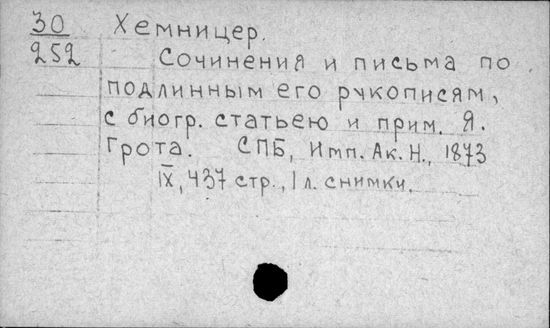 30 Хемницер.
252 Сочинения и письма по
подлинным его рукописям,
с биогр. статьею и прим. Я.
Грота. СПБ, Имп. Ак. Н., 1873
IX, 437 стр., 1 л. снимки.